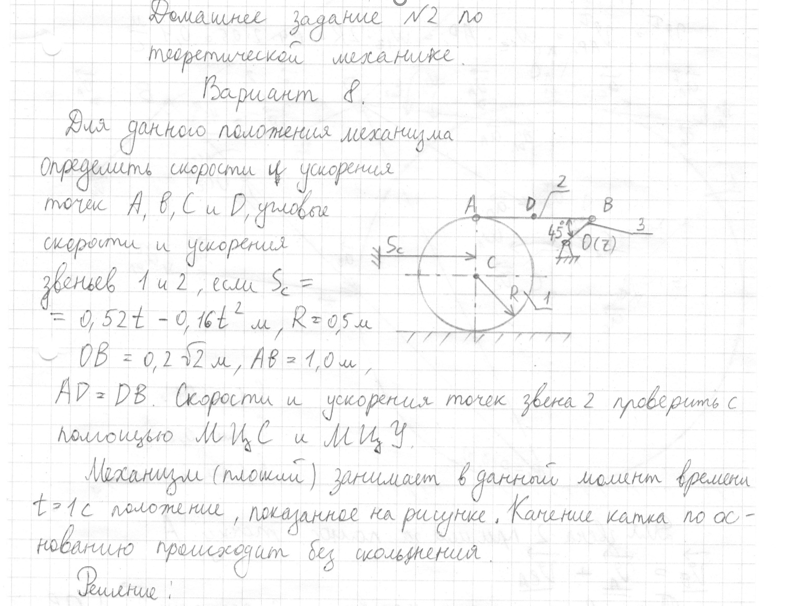 Домашнее задание №2 по
теоретической механике.
Вариант 8.
Для данного положения механизма
определить скорости и ускорения
точек A, B, C и D, угловые
скорости и ускорения
звеньев 1 и 2, если Sc =
= 0,52t - 0,16t² м, R = 0,5 м
OB = 0,2√2 м, AB = 1,0 м,
AD = DB. Скорости и ускорения точек звена 2 проверить с
помощью МЦС и МЦУ.
Механизм (плоский) занимает в данный момент времени
t = 1 с положение, показанное на рисунке. Качение катка по ос-
нованию происходит без скольжения.
Решение:
2
A D B
45° 3
O(τ)
Sc
C
R 1